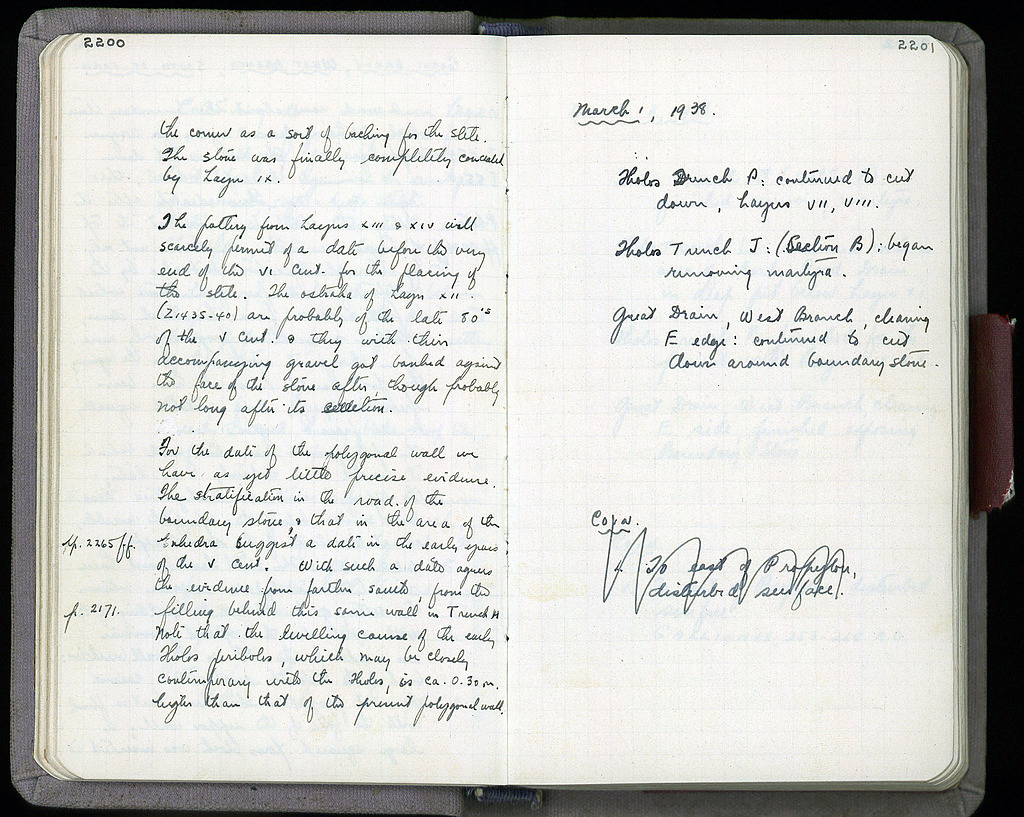 2200
the corner as a sort of backing for the stele.
The stone was finally completely concealed
by Layer IX.
The pottery from Layers XIII & XIV will
scarcely permit of a date before the very
end of the VI cent. for the placing of
the stele. The ostraka of Layer XII
(Z1435-40) are probably of the late 80's
of the V cent. & they with their
accompanying gravel got banked against
the face of the stone after, though probably
not long after its erection.
For the date of the polygonal wall we
have as yet little precise evidence.
The stratification in the road of the
boundary stone, & that in the area of the
pp. 2265 ff. Exhedra suggest a date in the early years
of the V cent. With such a date agrees
the evidence from farther south from the
p. 2171. filling behind this same wall in Trench H
Note that the levelling course of the early
Tholos peribolos, which may be closely
contemporary with the Tholos, is ca. 0.30 m.
higher than that of the present polygonal wall.
2201
March 1, 1938.
Tholos Trench P: continued to cut
down, Layers VII, VIII.
Tholos Trench J: (Section B): began
removing martyra.
Great Drain, West Branch, clearing
E edge: continued to cut
down around boundary stone.
Coin.
1. To east of Propylon,
disturbed surface.